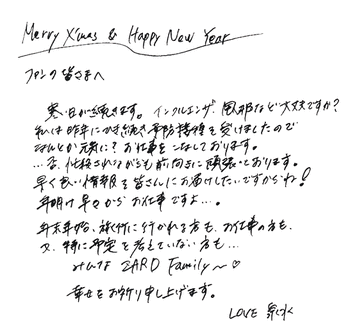 Merry X'mas & Happy New Year
ファンの皆さまへ
寒い日が続きます。インフルエンザ、風邪など大丈夫ですか?
私は昨年に引き続き予防接種を受けましたので
なんとか元気に?お仕事をこなしております。
…否、化かされながらも前向きに頑張っております。
早く良い情報を皆さんにお届けしたいですからね!
年明け早々からお仕事ですよ…。
年末年始、旅行に行かれる方も、お仕事の方も、
又、特に予定を考えていない方も…
みんな ZARD Family〜♡
幸せをお祈り申し上げます。
LOVE 泉水